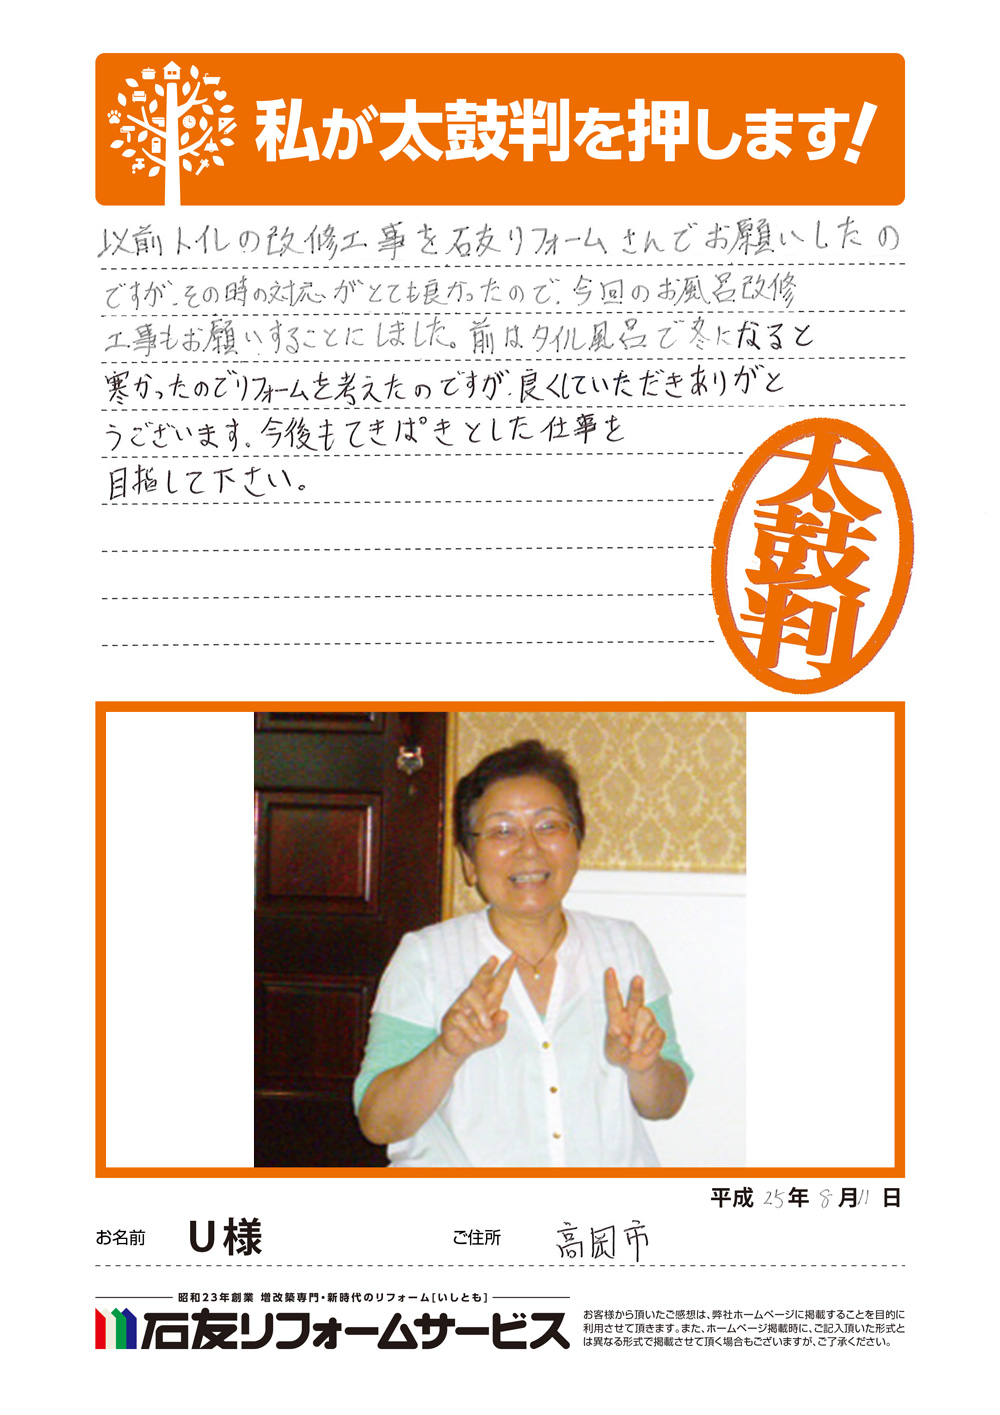 私が太鼓判を押します!
以前トイレの改修工事を石友リフォームさんでお願いしたの
ですが、その時の対応がとても良かったので、今回のお風呂改修
工事もお願いすることにしました。前はタイル風呂で冬になると
寒かったのでリフォームを考えたのですが、良くしていただきありがと
うございます。今後もてきぱきとした仕事を
目指して下さい。
太鼓判
平成 25年 8月11日
お名前 U様 ご住所 高岡市
昭和23年創業 増改築専門・新時代のリフォーム[いしとも]
石友リフォームサービス
お客様から頂いたご感想は、弊社ホームページに掲載することを目的に
利用させて頂きます。また、ホームページ掲載時に、ご記入頂いた形式と
は異なる形式で掲載させて頂く場合もございますが、ご了承ください。